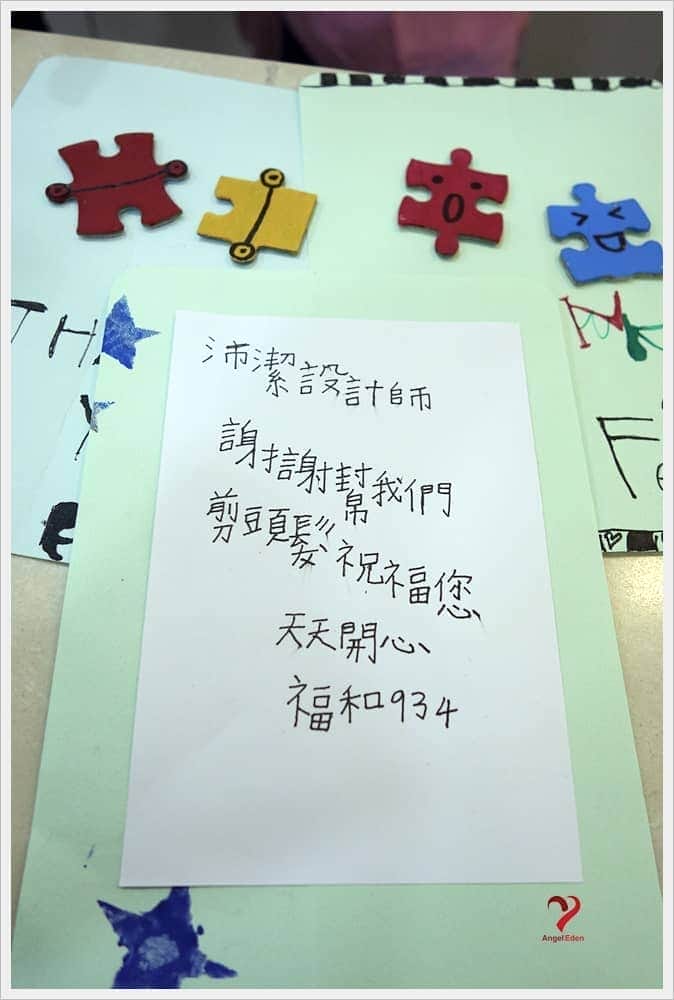 TH
沛潔設計師
謝謝幫我們
剪頭髮祝福您
天天開心
福和934
Angel Eden